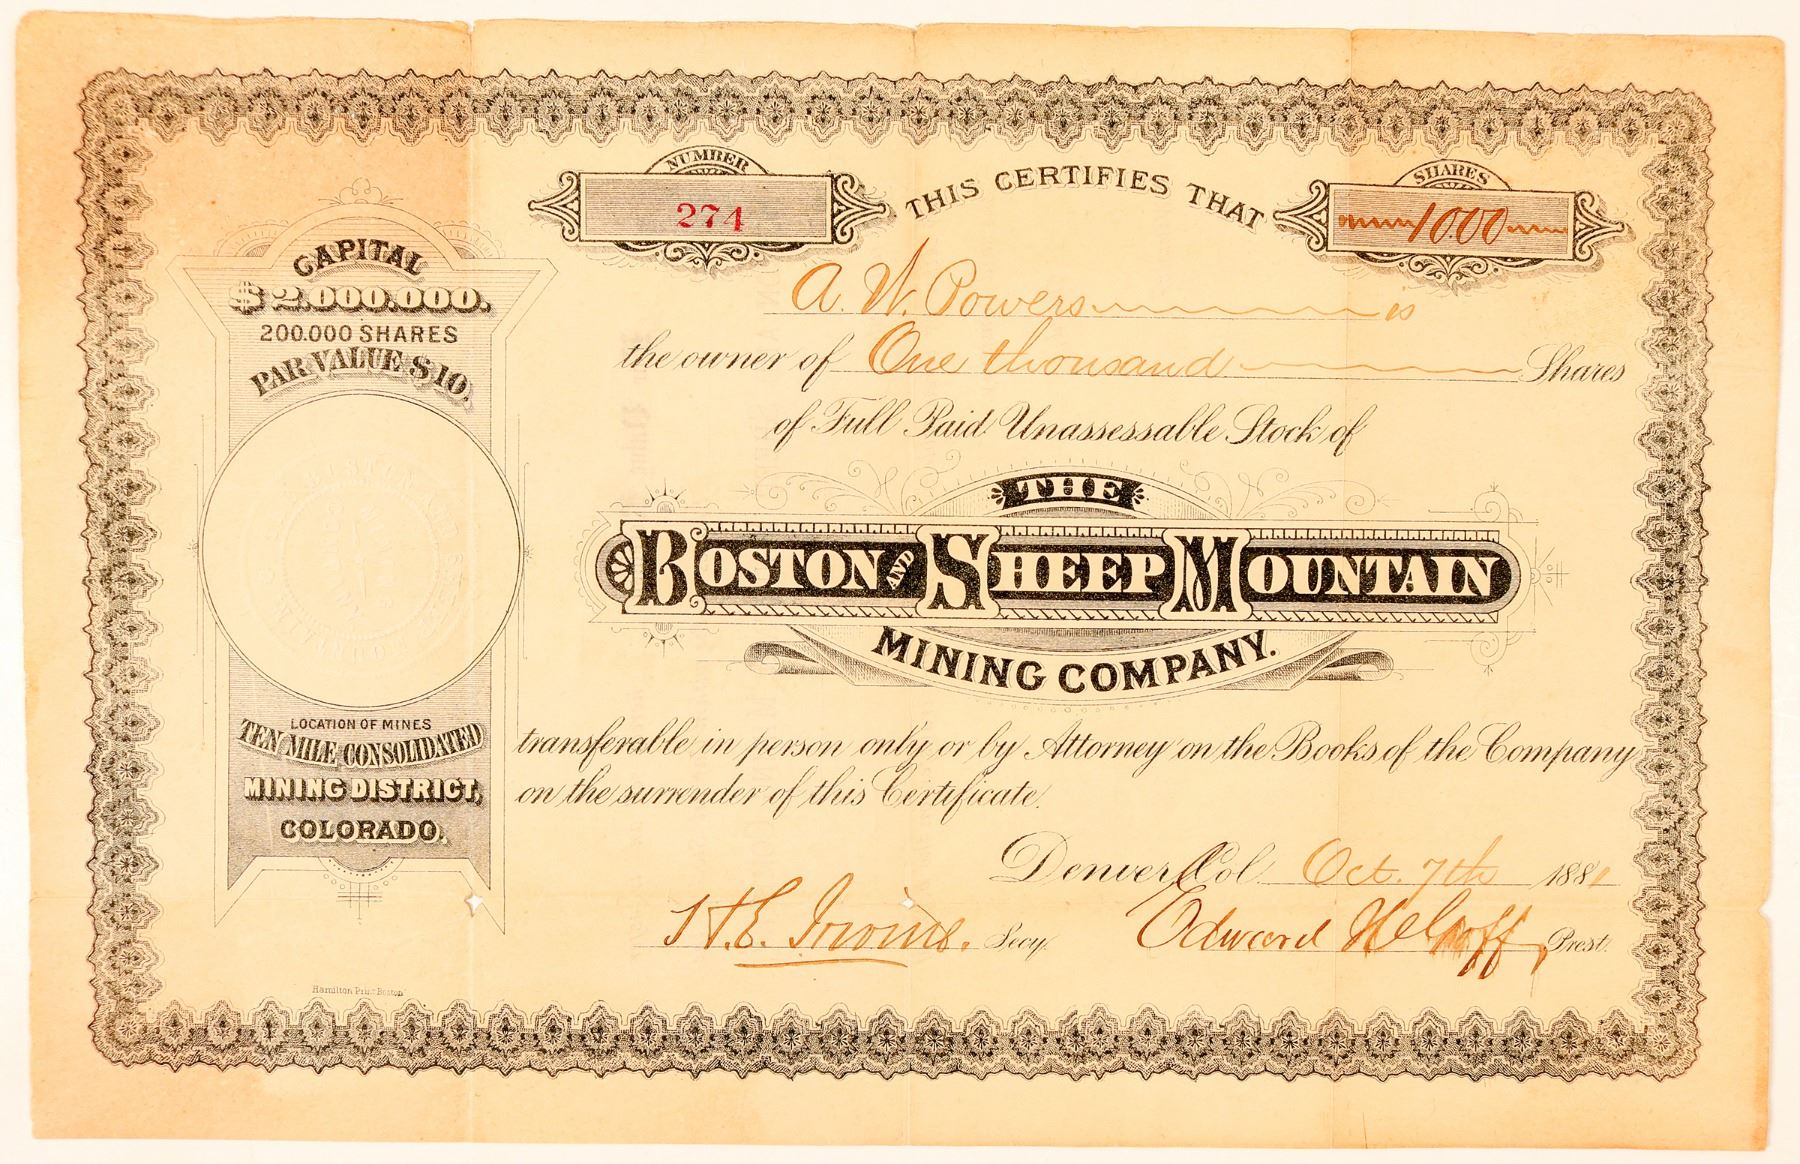 NUMBER
274
THIS CERTIFIES THAT
SHARES
1000
A. W. Powers is
the owner of One thousand Shares
of Full Paid Unassessable Stock of
THE
BOSTON AND SHEEP MOUNTAIN
MINING COMPANY.
transferable in person only or by Attorney on the Books of the Company
on the surrender of this Certificate.
Denver, Col. Oct. 7th 1881
H. E. Irvine. Secy.
Edward Prest.
CAPITAL
$2.000.000.
200.000 SHARES
PAR VALUE $10.
LOCATION OF MINES
TEN MILE CONSOLIDATED
MINING DISTRICT,
COLORADO.
Hamilton Print Boston